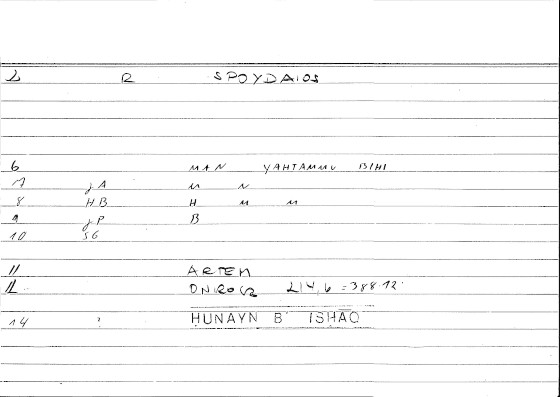 2 R SPOYDAIOS
6 MAN YAHTAMMU BIHI
7 JA M N
8 HB H M M
9 JP B
10 SG
11 ARTEM
12 ONIROCR 214,6 = 388 12
14 ? ḤUNAYN B ISḤĀQ